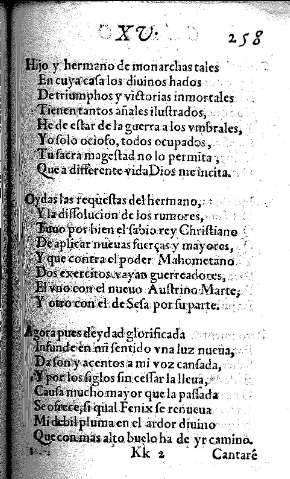 XV. 258
Hijo y hermano de monarchas tales
En cuya casa los diuinos hados
De triumphos y victorias inmortales
Tienen tantos añales ilustrados,
He de estar de la guerra a los vmbrales,
Yo solo ocioso, todos ocupados,
Tu sacra magestad no lo permita,
Que a differente vida Dios me incita.
Oydas las requestas del hermano,
Y la dissolucion de los rumores,
Tuuo por bien el sabio rey Christiano
De aplicar nueuas fuerças y mayores,
Y que contra el poder Mahometano
Dos exercitos vayan guerreadores,
El vno con el nueuo Austrino Marte,
Y otro con el de Sesa por su parte.
Agora pues deydad glorificada
Infunde en mi sentido vna luz nueua,
Da son y acentos a mi voz cansada,
Y por los siglos sin cessar la lleua,
Causa mucho mayor que la passada
Se ofrece, si qual Fenix se renueua
Mi debil pluma en el ardor diuino
Que con mas alto buelo ha de yr camino.
Kk 2 Cantarê